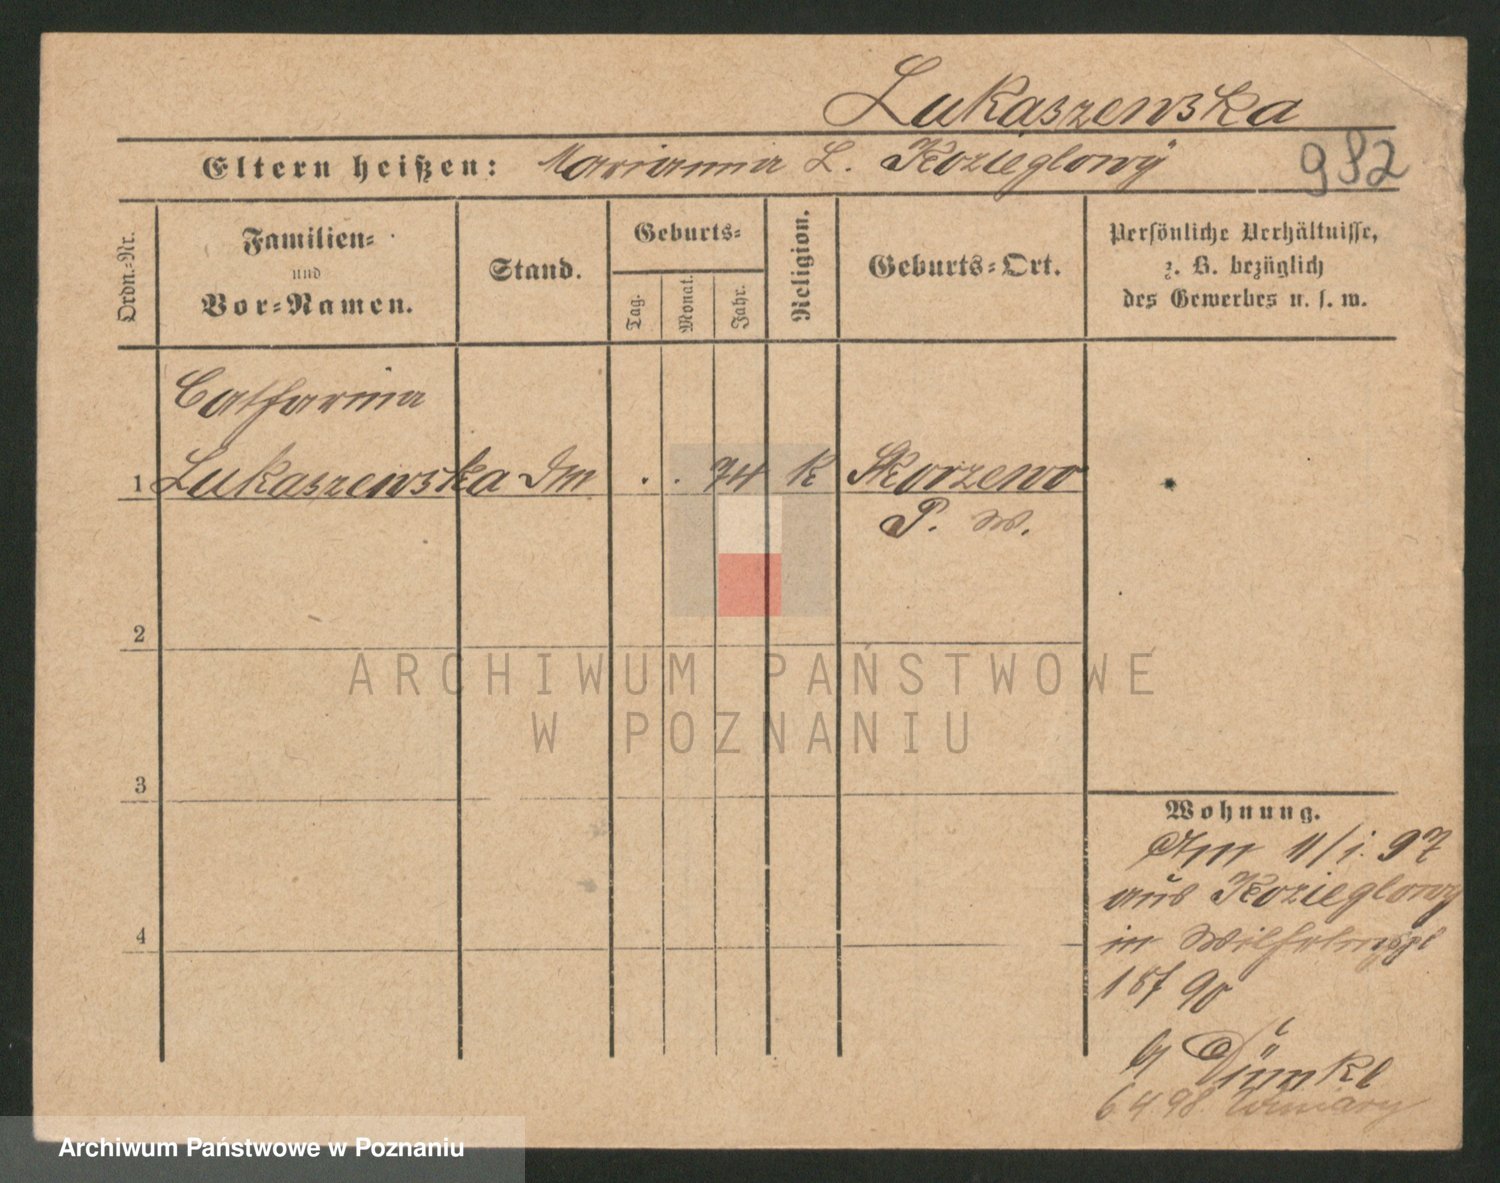 Lukaszewska
Eltern heißen: Marianna L. Kozieglowÿ
982
Ordn.-Nr.
Familien-
und
Vor-Namen.
Stand.
Geburts-
Tag.
Monat.
Jahr.
Religion.
Geburts-Ort.
Persönliche Verhältnisse,
z. B. bezüglich
des Gewerbes u. s. w.
Catharina
1 Lukaszewska . . 74 k Skorzewo
P. W.
2
3
4
Wohnung.
11/1. 97
aus Kozieglowy
in
90
6 4 98. Winiary
ARCHIWUM PAŃSTWOWE
W POZNANIU
Archiwum Państwowe w Poznaniu